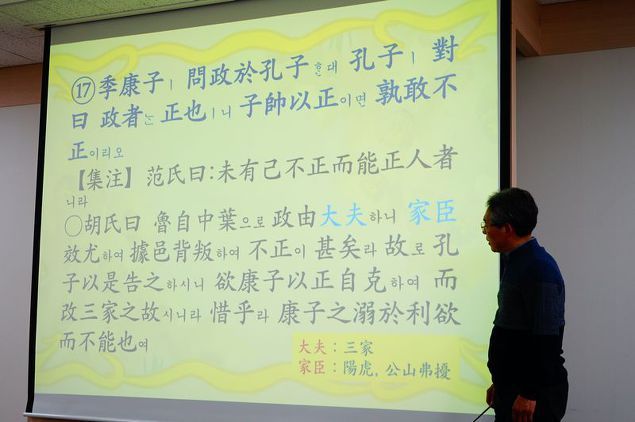 ⑰季康子ㅣ 問政於孔子ᄒᆞᆫ대 孔子ㅣ 對
曰 政者ᄂᆞᆫ 正也ㅣ니 子帥以正이면 孰敢不
正이리오
【集注】 范氏曰:未有己不正而能正人者
니라
○胡氏曰 魯自中葉으로 政由大夫하니 家臣
效尤하여 據邑背叛하여 不正이 甚矣라 故로 孔
子以是告之하시니 欲康子以正自克하여 而
改三家之故시니라 惜乎라 康子之溺於利欲
而不能也여
大夫：三家
家臣：陽虎, 公山弗擾